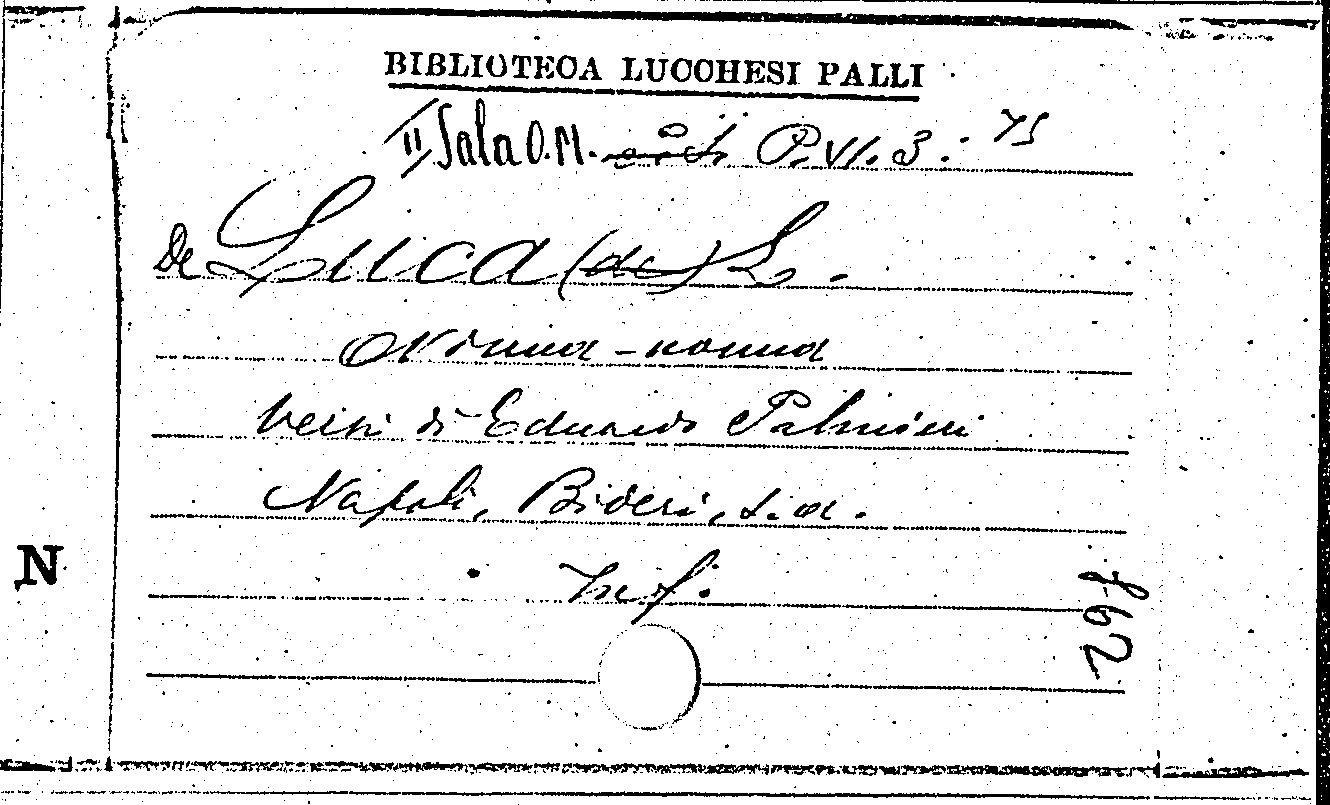 BIBLIOTECA LUCCHESI PALLI
II Sala O.M. P. VI. 3. 75
De Luca (de) L.
Ninna-nanna
Versi di Eduardo Palmieri
Napoli, Bideri, s.a.
in f.
N
f62